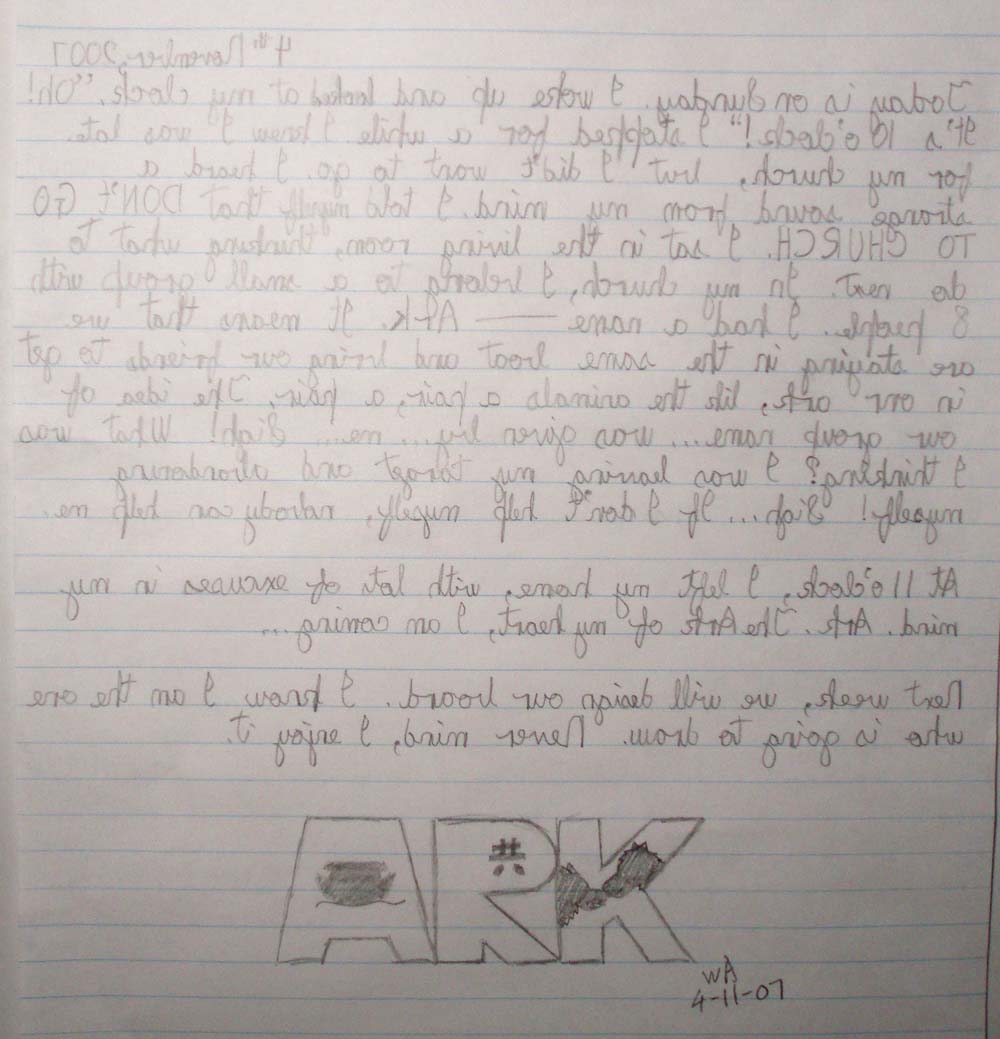 4th November, 2007
Today is on Sunday. I woke up and looked at my clock. "Oh!
It's 10 o'clock!" I stopped for a while I knew I was late
for my church, but I did't want to go. I heard a
strong sound from my mind. I told myself that DON'T GO
TO CHURCH. I sat in the living room, thinking what to
do next. In my church, I belong to a small group with
8 people. I had a name —— Ark. It means that we
are staying in the same boat and bring our friends to get
in our ark, like the animals a pair, a pair. The idea of
our group name... was given by... me... Sigh! What was
I thinking? I was leaving my target and abandoning
myself! Sigh... If I don't help myself, nobody can help me.
At 11 o'clock, I left my home, with lots of excuses in my
mind. Ark. The Ark of my heart, I am coming...
Next week, we will design our board. I know I am the one
who is going to draw. Never mind, I enjoy it.
ARK
共
WA
4-11-07